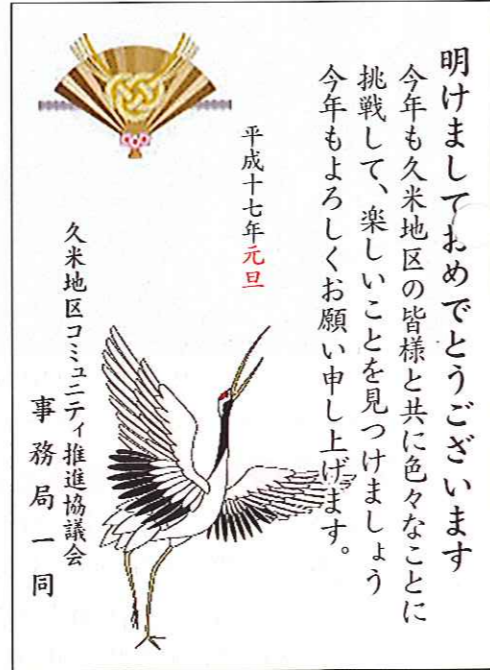 明けましておめでとうございます
今年も久米地区の皆様と共に色々なことに
挑戦して、楽しいことを見つけましょう
今年もよろしくお願い申し上げます。
平成十七年元旦
久米地区コミュニティ推進協議会
事務局一同